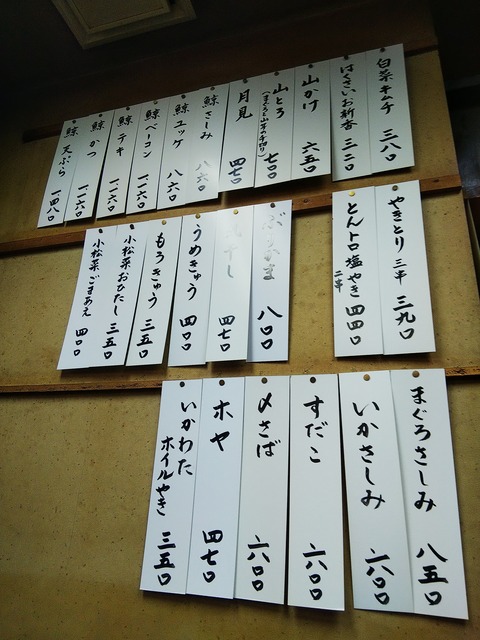 白菜キムチ 三八〇
はくさいお新香 三二〇
山かけ 六五〇
山とろ(まぐろと山芋の千切り) 七〇〇
月見 四七〇
鯨さしみ 八六〇
鯨ユッケ 八六〇
鯨ベーコン 一一六〇
鯨テキ 一一六〇
鯨かつ 一一六〇
鯨天ぷら 一四八〇
やきとり 三串 三九〇
とんトロ塩やき 二串 四四〇
八〇〇
干し 四七〇
うめきゅう 四〇〇
もろきゅう 三五〇
小松菜おひたし 三五〇
小松菜ごまあえ 四〇〇
まぐろさしみ 八五〇
いかさしみ 六〇〇
すだこ 六〇〇
〆さば 六〇〇
ホヤ 四七〇
いかわたホイルやき 三五〇